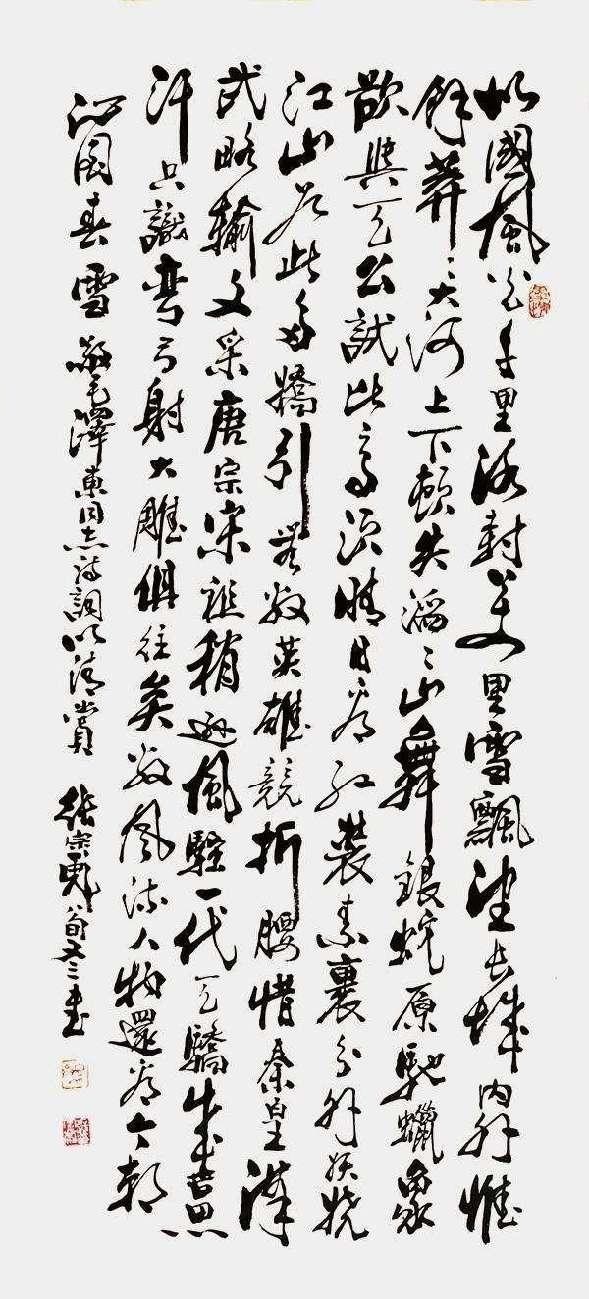 北國風光千里冰封万里雪飄望長城内外惟
餘莽々大河上下頓失滔々山舞銀蛇原馳蠟象
欲與天公試比高須晴日看紅裝素裹分外妖嬈
江山如此多嬌引無數英雄競折腰惜秦皇漢
武略輸文采唐宗宋祖稍遜風騷一代天驕成吉思
汗只識彎弓射大雕俱往矣數風流人物還看今朝
沁園春雪 毛澤東同志詩詞以清賞 張宗 八旬又三書